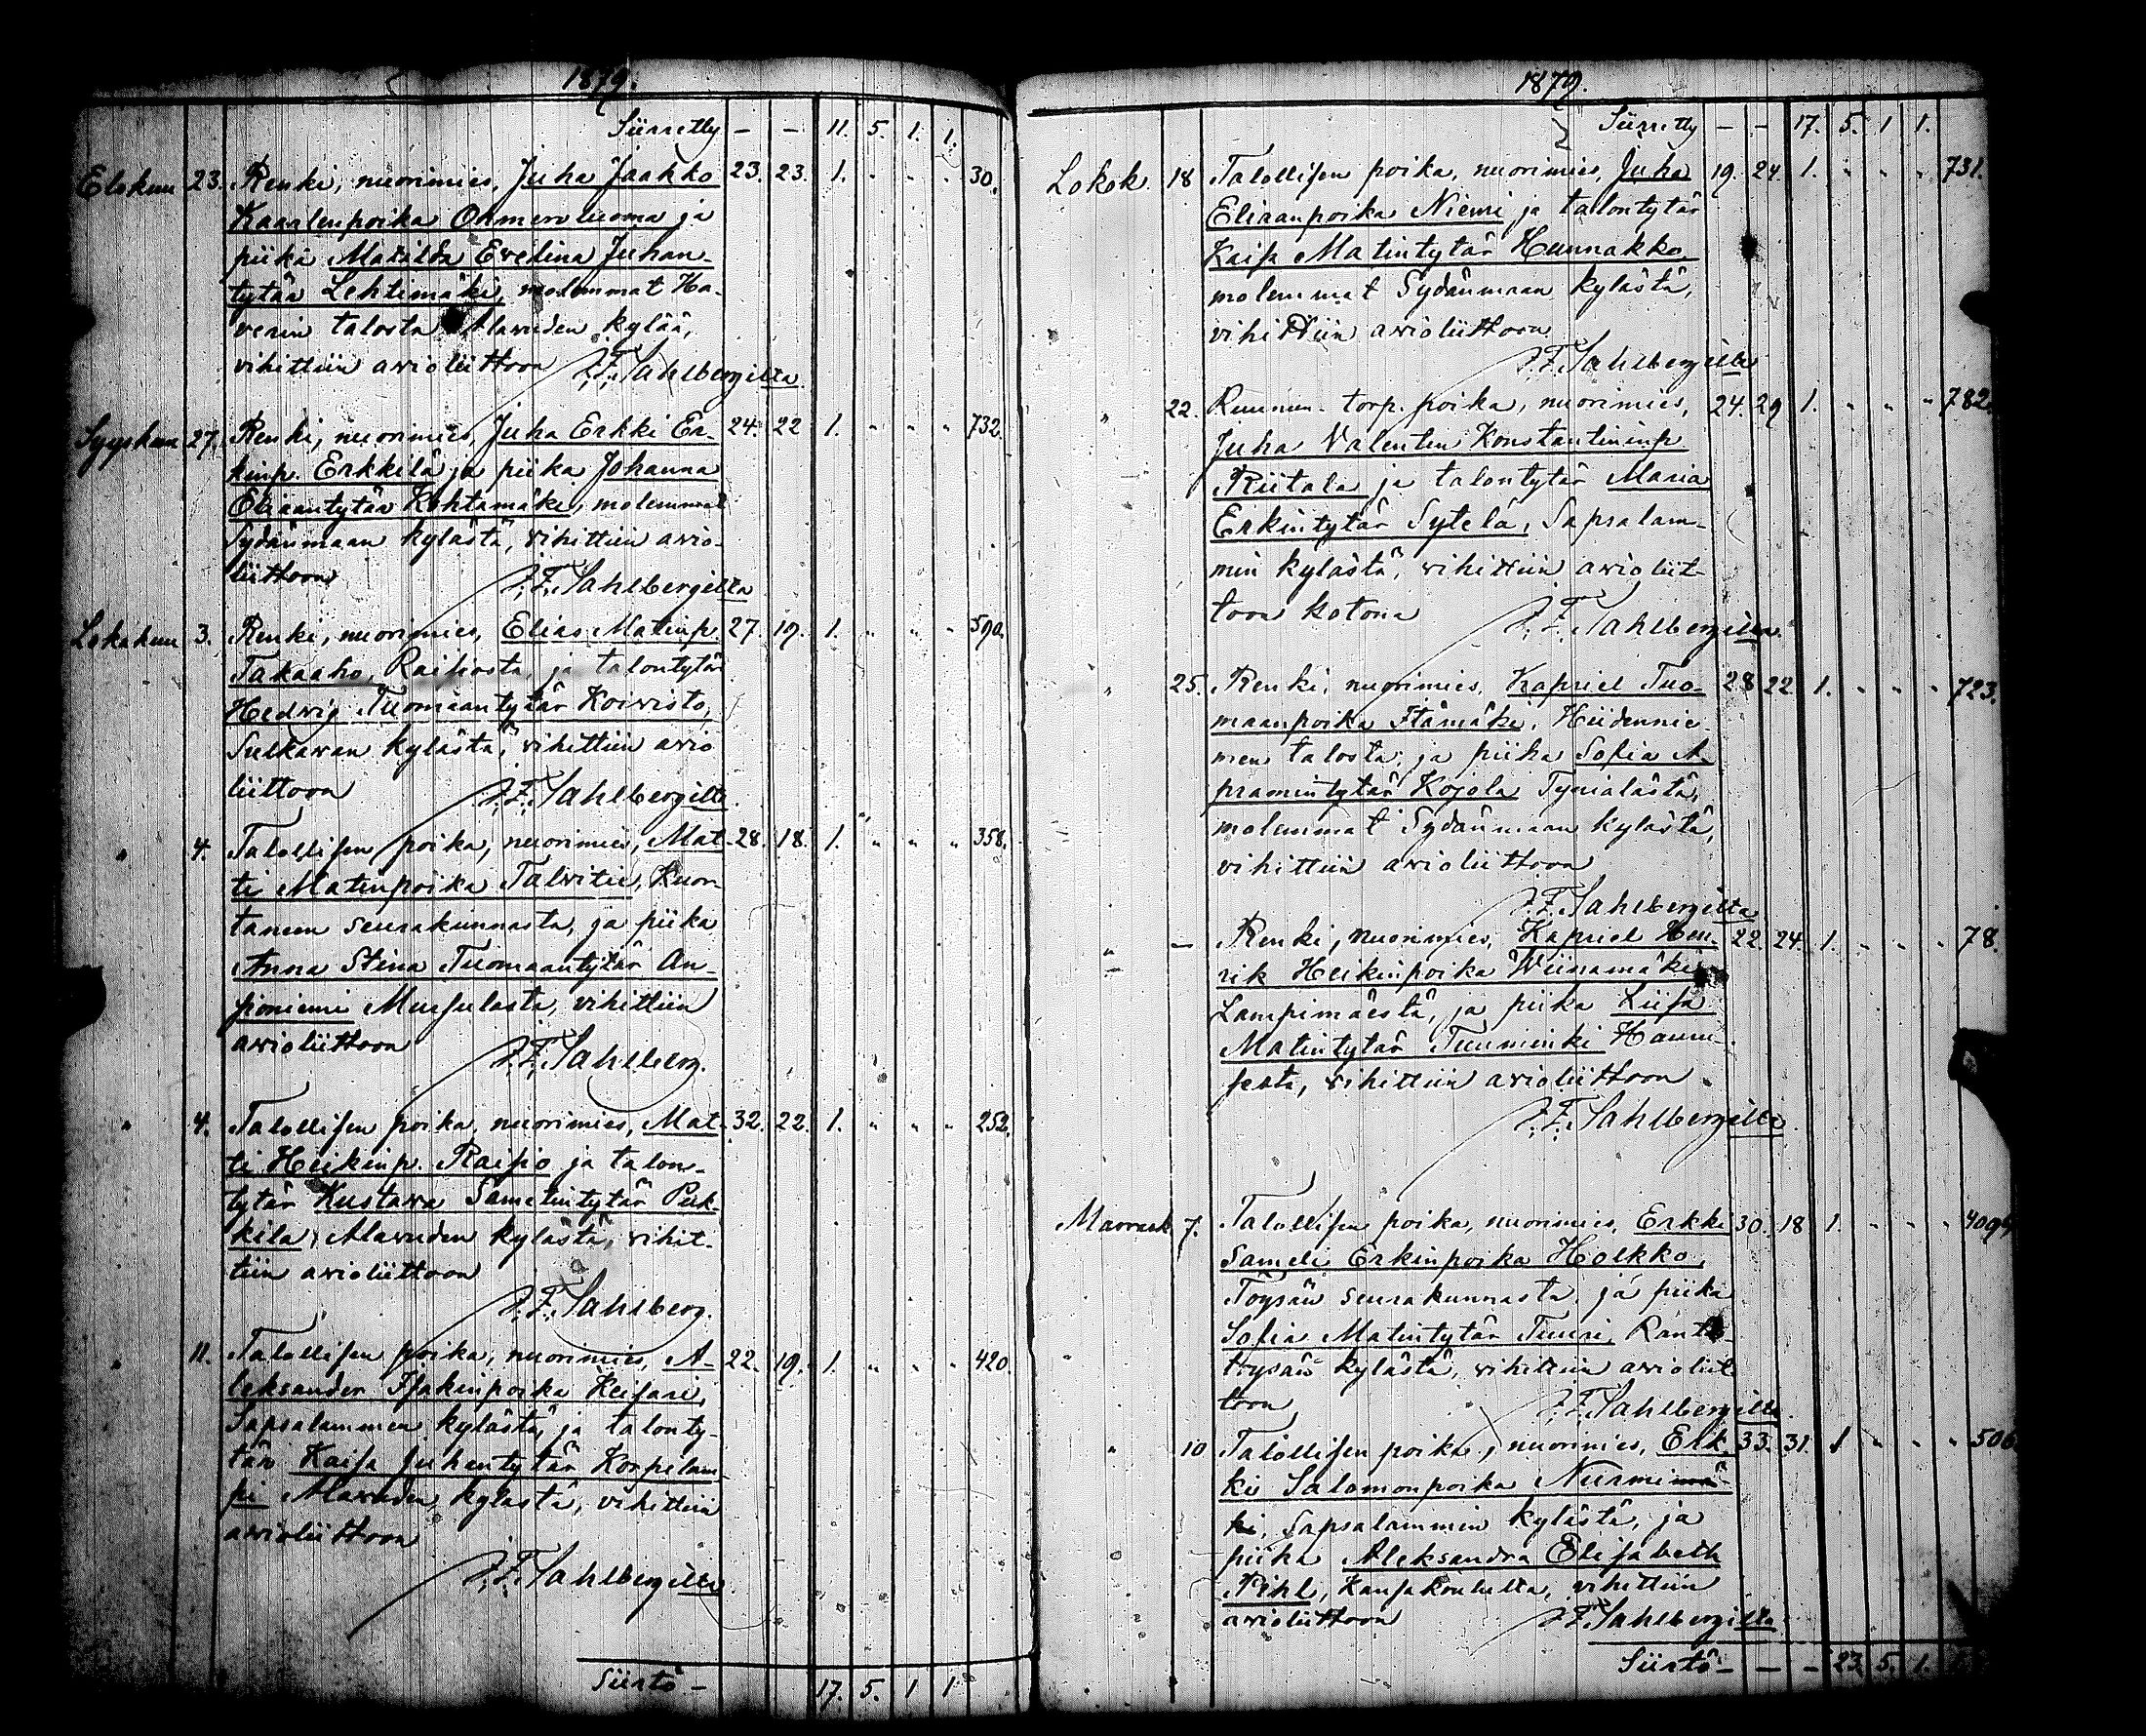 1879.
Siirretty - - 11. 5. 1. 1.
Elokuu 23. Renki, nuorimies, Juha Jaakko 23. 23. 1. " " " 30.
Kaarlenpoika Onnenvuoma ja
piika Matilda Evelina Juhan-
tytär Lehtimäki, molemmat Ha-
verin talosta Alavuden kylää,
vihittiin avioliittoon
J. F. Sahlbergilta
Syyskuu 27. Renki, nuorimies, Juha Erkki Er- 24. 22 1. " " " 732.
kinp. Erkkilä ja piika Johanna
Eliaantytär Kohtamäki, molemmat
Sydänmaan kylästä, vihittiin avio-
liittoon
J. F. Sahlbergilta
Lokakuu 3. Renki, nuorimies, Elias Matinp. 27. 19. 1. " " " 590.
Takaaho, Raiskosta, ja talontytär
Hedvig Tuomaantytär Koivisto,
Sulkavan kylästä, vihittiin avio
liittoon
J. F. Sahlbergilta
" 4. Talollisen poika, nuorimies, Mat- 28. 18. 1. " " " 358.
ti Matinpoika Talvitie, Kuor-
taneen seurakunnasta, ja piika
Anna Stina Tuomaantytär An-
jioniemi Mursulasta, vihittiin
avioliittoon
J. F. Sahlberg.
" 4. Talollisen poika, nuorimies, Mat- 32. 22. 1. " " " 252.
ti Heikinp. Raisio ja talon-
tytär Kustava Sameluntytär Puk-
kila, Alavuden kylästä, vihit-
tiin avioliittoon
J. F. Sahlberg.
" 11. Talollisen poika, nuorimies, A- 22. 19. 1. " " " 420.
leksander Isakinpoika Keisari,
Sapsalammin kylästä, ja talonty-
tär Kaisa Juhantytär Korpelam-
pi Alavuden kylästä, vihittiin
avioliittoon
J. F. Sahlbergilta
Siirtö - 17. 5. 1 1
1879.
Siirretty - - 17. 5. 1 1.
Lokok. 18 Talollisen poika, nuorimies, Juha 19. 24. 1. " " " 731.
Eliaanpoika Niemi ja talontytär
Kaisa Matintytär Hunnakko,
molemmat Sydänmaan kylästä,
vihittiin avioliittoon
J. F. Sahlbergilta
" 22. Ruunun-torp. poika, nuorimies, 24. 29 1. " " " 782.
Juha Valentin Konstantininp.
Riitala ja talontytär Maria
Erkintytär Sytelä, Sapsalam-
min kylästä, vihittiin avioliit-
toon kotona
J. F. Sahlbergilta
" 25. Renki, nuorimies, Kapriel Tuo- 28 22 1. " " " 723.
maanpoika Itämäki, Hiidennie
men talosta; ja piika Sofia A-
pramintytär Kojola Tynialästä,
molemmat Sydänmaan kylästä,
vihittiin avioliittoon
J. F. Sahlbergilta
" - Renki, nuorimies, Kapriel Hen- 22. 24. 1. " " " 78.
rik Heikinpoika Wiinamäki
Lampimäestä, ja piika Liisa
Matintytär Tuuminki Haum-
sesta, vihittiin avioliittoon
J. F. Sahlbergilta
Marrask. 7. Talollisen poika, nuorimies, Erkki 30. 18 1. " " "
Sameli Erkinpoika Holkko,
Töysän seurakunnasta, ja piika
Sofia Matintytär Tuuri, Ranta-
töysän kylästä, vihittiin avioliit
toon
J. F. Sahlbergilta
" 10 Talollisen poika, nuorimies, Erk- 33. 31. 1 " " " 506.
ki Salomonpoika Nurmimä-
ki, Sapsalammin kylästä, ja
piika Aleksandra Elisabeth
Pihl, Kansakoululta, vihittiin
avioliittoon
J. F. Sahlbergilta
Siirtö - - - 23. 5. 1.